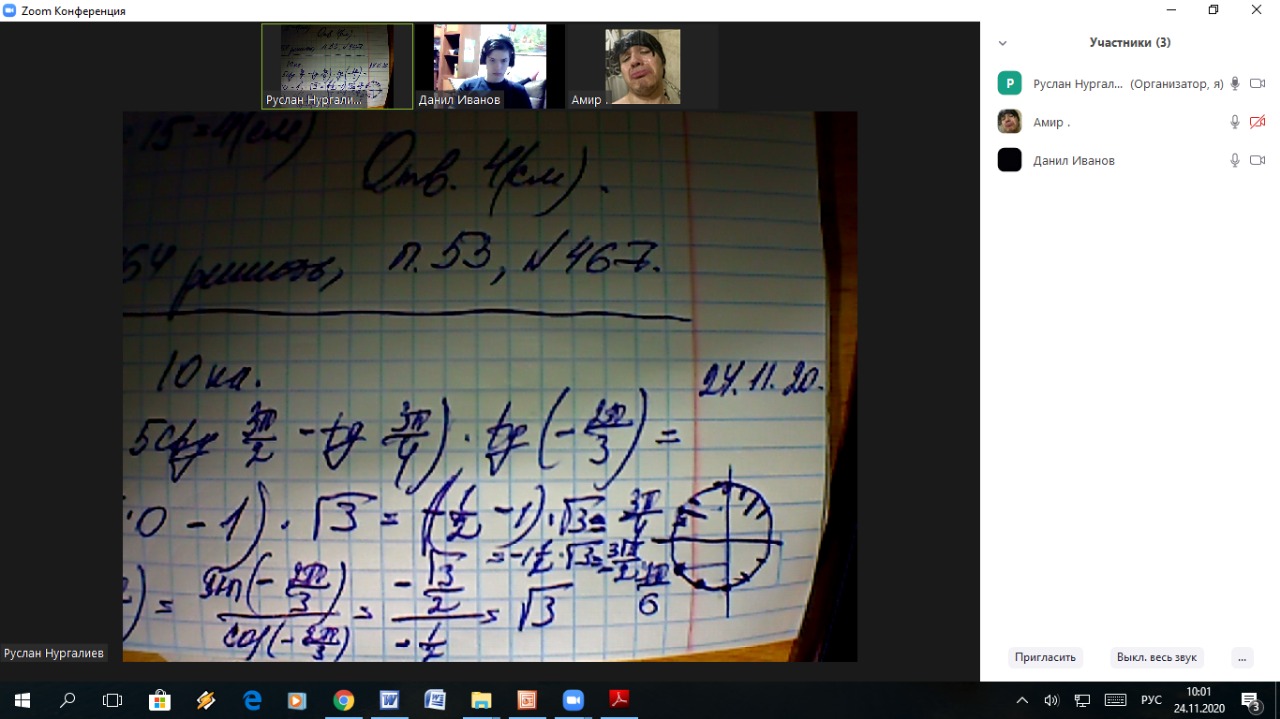 Zoom Конференция
Руслан Нургали...
Данил Иванов
Амир .
Участники (3)
Р Руслан Нургал... (Организатор, я)
Амир .
Данил Иванов
15 = 4(см)
Отв. 4(см).
64 решать, п. 53, № 467.
10 кл. 24.11.20.
5ctg 3π/2 - tg 3π/4) · tg (- 2π/3) =
· 0 - 1) · √3 = (-1/2 - 1) · √3 = 3π/4
= -1 1/2 · √3 =
6
) = sin(- 2π/3) / cos(- 2π/3) = - √3/2 / - 1/2 = √3
Руслан Нургалиев
Пригласить
Выкл. весь звук
...
РУС
10:01
24.11.2020
3